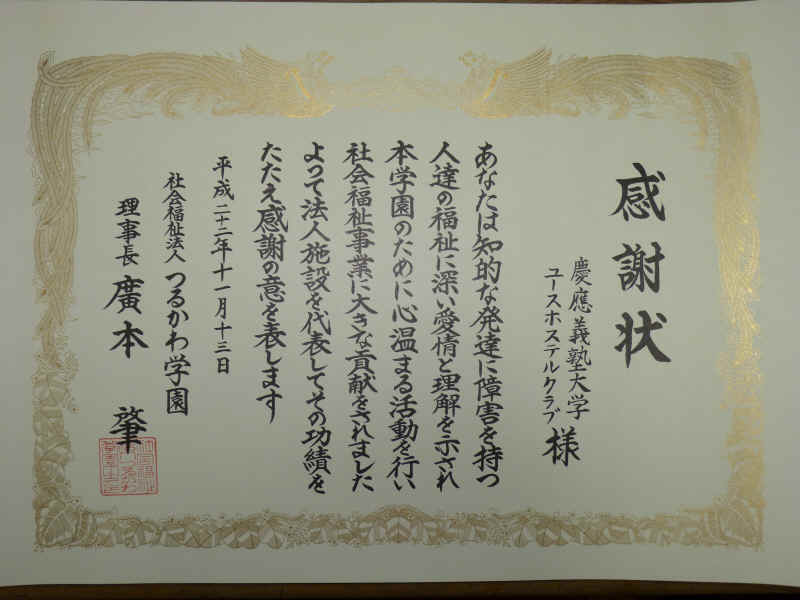 感謝状
慶應義塾大学
ユースホステルクラブ 様
あなたは知的な発達に障害を持つ
人達の福祉に深い愛情と理解を示され
本学園のために心温まる活動を行い
社会福祉事業に大きな貢献をされました
よって法人施設を代表してその功績を
たたえ感謝の意を表します
平成二十二年十一月十三日
社会福祉法人 つるかわ学園
理事長 廣本 肇